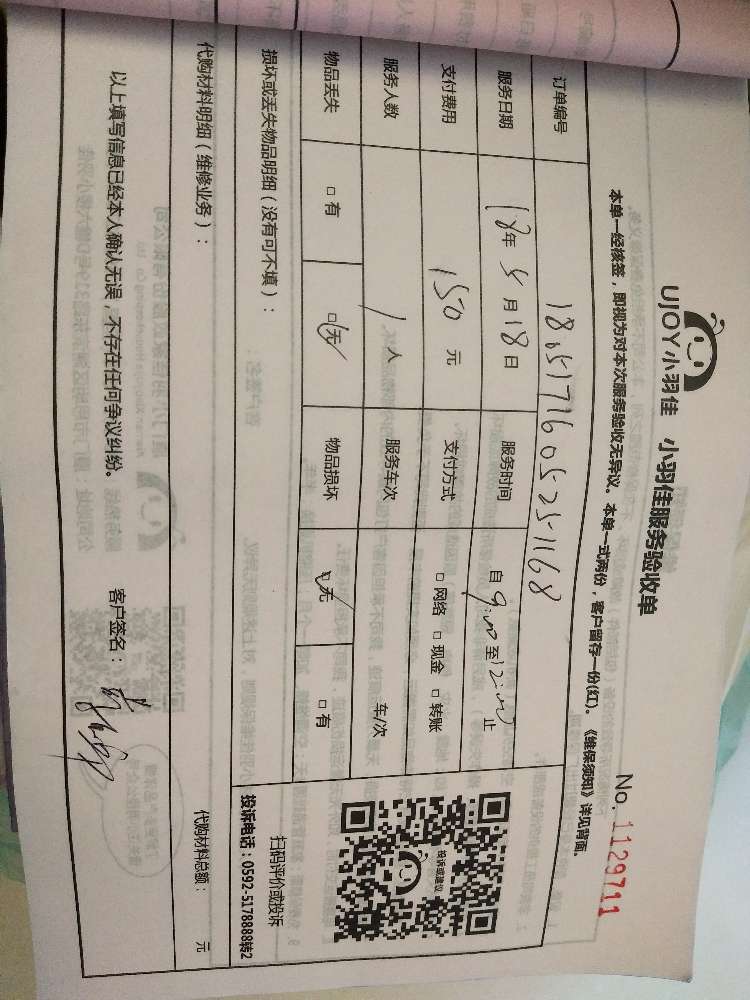 UJOY小羽佳 小羽佳服务验收单
No. 1129711
本单一经核签，即视为对本次服务验收无异议。本单一式两份，客户留存一份(红)。《维保须知》详见背面。
订单编号 18051716052525-1168
服务日期 18年 5月 18日 服务时间 自 9:00 至 12:00 止
支付费用 150 元 支付方式 □ 网络 □ 现金 □ 转账
服务人数 1 人 服务车次 车/次
物品丢失 □ 有 □ 无 物品损坏 □ 无 □ 有
投诉或建议
扫码评价或投诉
投诉电话：0592-5178888转2
损坏或丢失物品明细（没有可不填）：
代购材料明细（维修业务）：
代购材料总额： 元
以上填写信息已经本人确认无误，不存在任何争议纠纷。 客户签名：